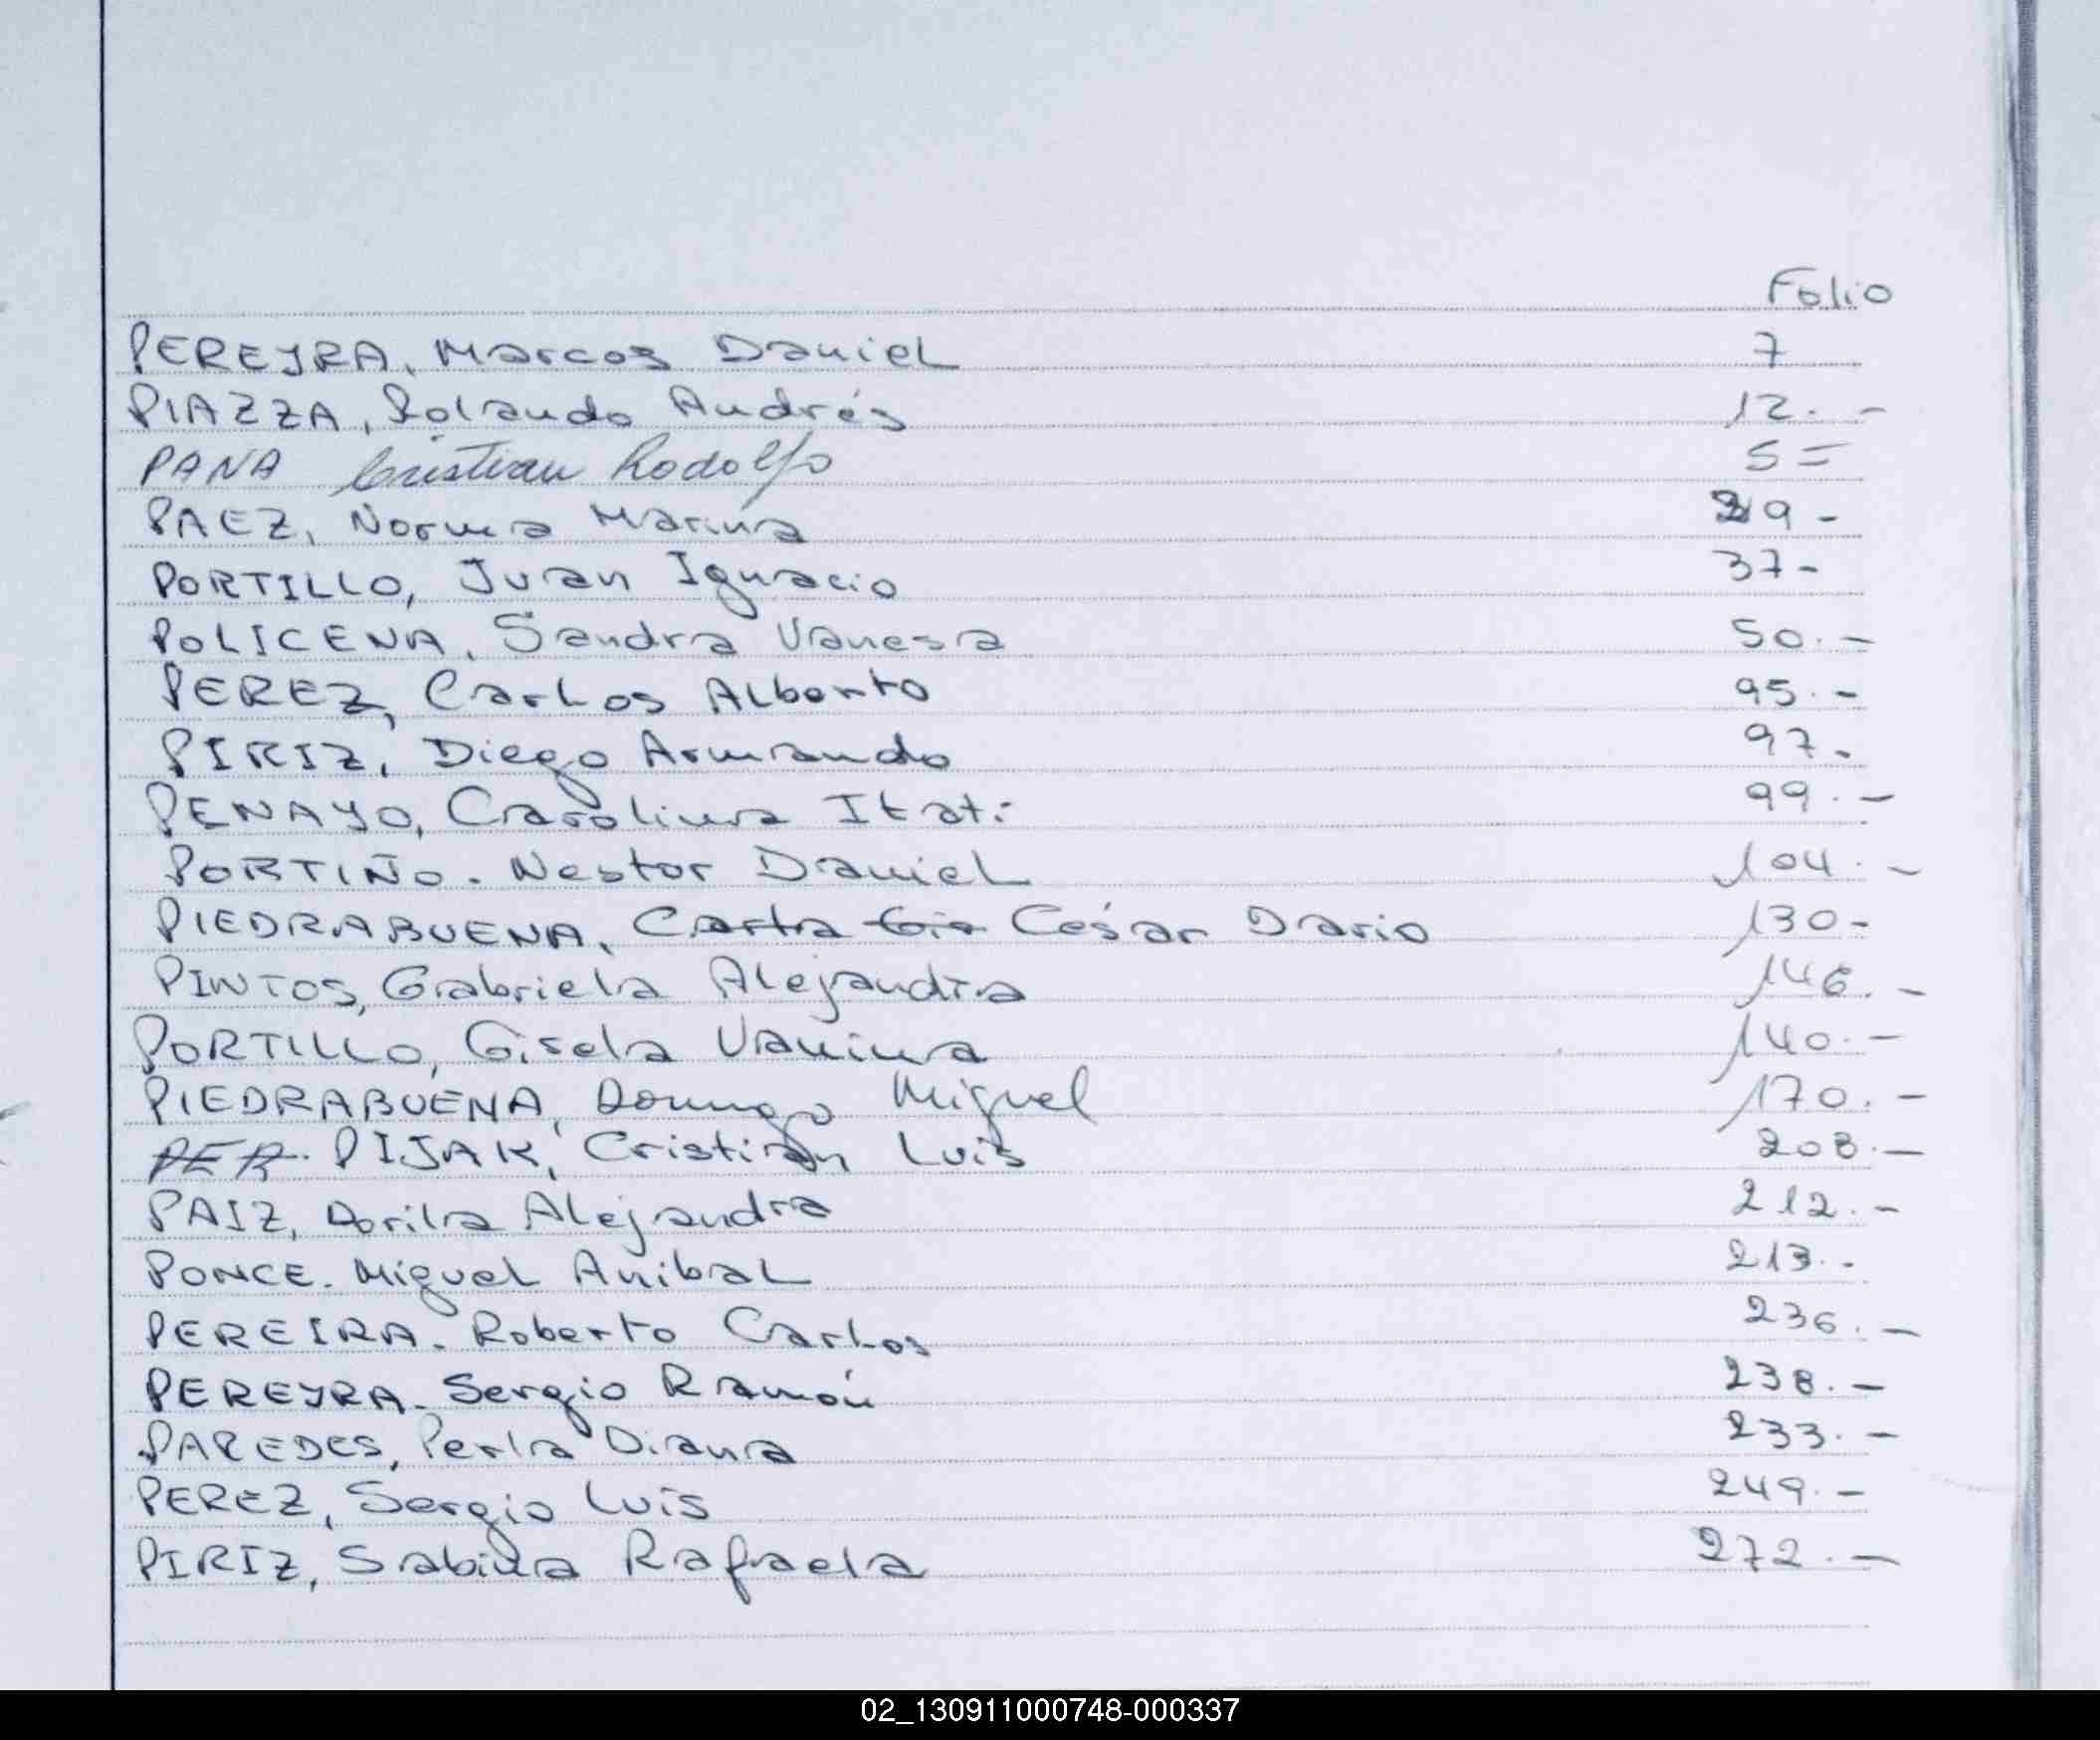 Folio
PEREYRA, Marcos Daniel 7
PIAZZA, Rolando Andrés 12.-
PANA Cristian Rodolfo 5=
PAEZ, Norma Marina 29-
PORTILLO, Juan Ignacio 37-
POLICENA, Sandra Vanesa 50.-
PEREZ, Carlos Alberto 95.-
PIRIZ, Diego Armando 97.
PENAYO, Carolina Itati 99.-
PORTIÑO. Nestor Daniel 104.-
PIEDRABUENA, César Dario 130-
PINTOS, Gabriela Alejandra 146.-
PORTILLO, Gisela Vanina 140.-
PIEDRABUENA, Domingo Miguel 170.-
PER. PIJAK, Cristian Luis 208.-
PAIZ, Dorila Alejandra 212.-
PONCE. Miguel Anibal 213.-
PEREIRA. Roberto Carlos 236.-
PEREYRA. Sergio Ramón 238.-
PAREDES, Perla Diana 233.-
PEREZ, Sergio Luis 249.-
PIRIZ, Sabina Rafaela 272.-
02_130911000748-000337